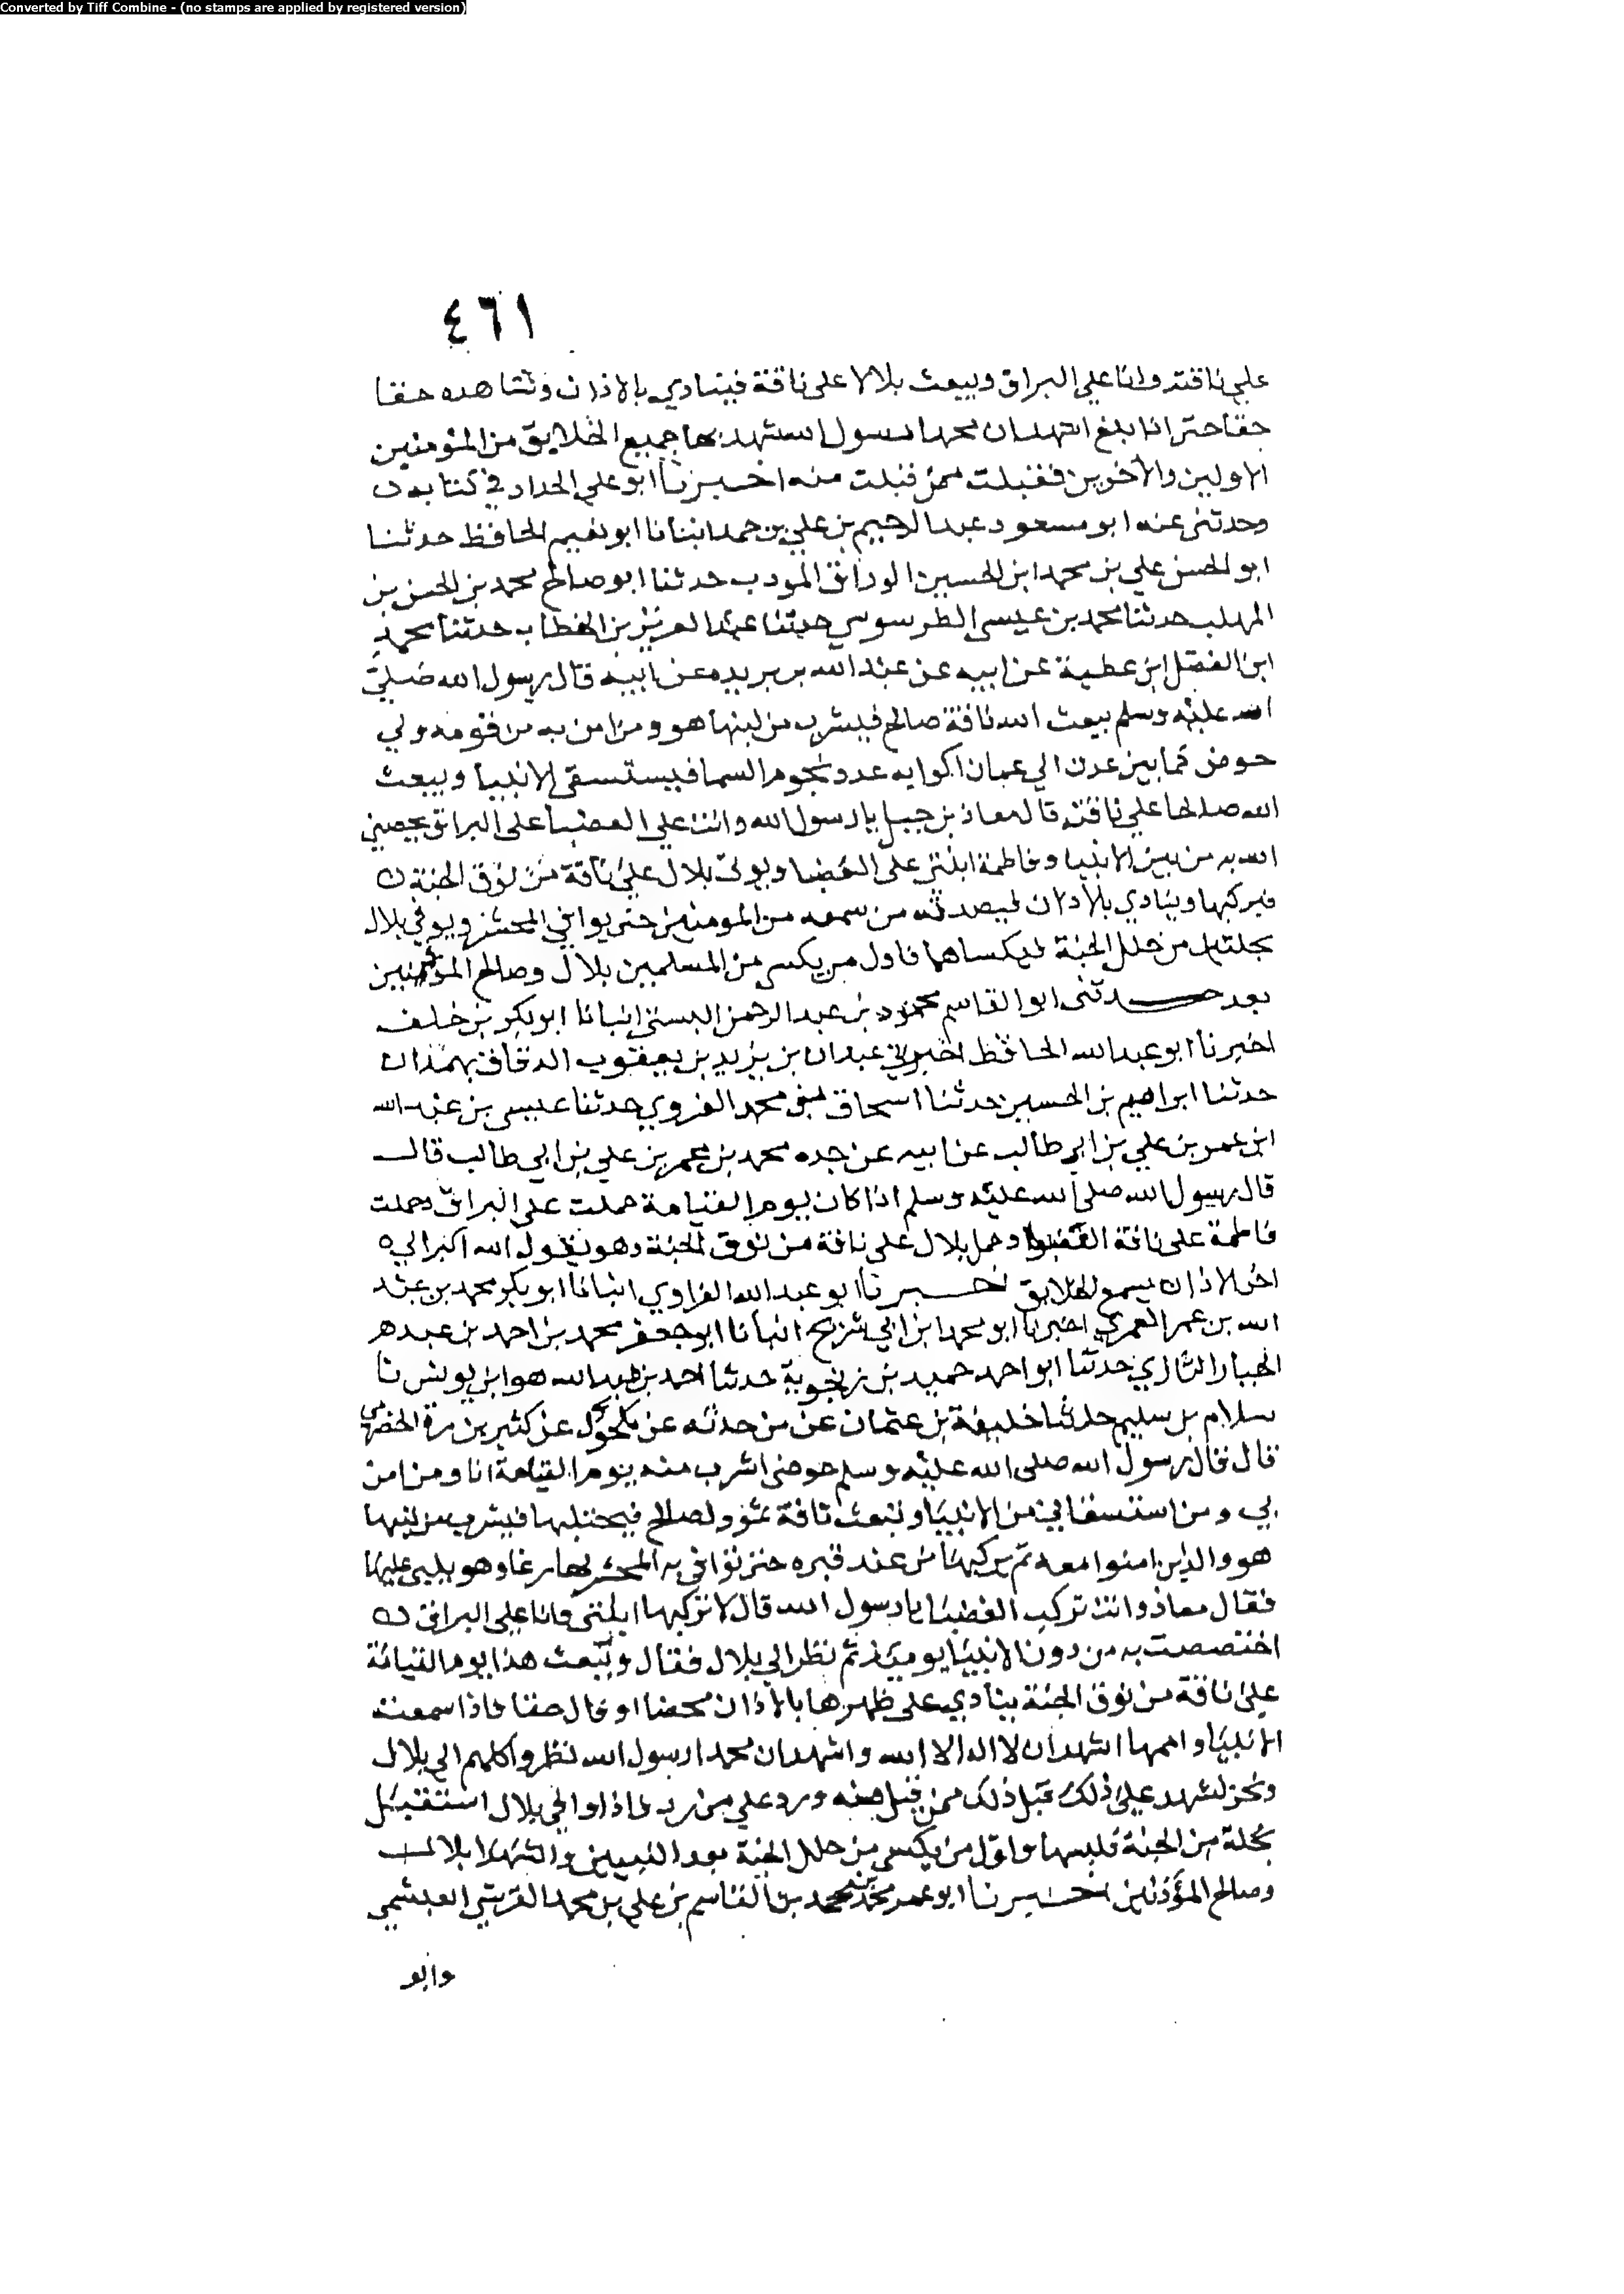 Converted by Tiff Combine - (no stamps are applied by registered version)
٤٦١
علي ناقته وانا علي البراق ويبعث بلالا على ناقة فينادي بالاذان وشاهده حقا
حقا حتى اذا بلغ اشهد ان محمدا رسول الله شهد بها جميع الخلايق من المؤمنين
الاولين والاخرين فقبلت ممن قبلت منه اخبرنا ابو علي الحداد في كتابه
وحدثني عنه ابو مسعود عبد الرحيم بن علي بن حمد انبانا ابو نعيم الحافظ حدثنا
ابو الحسن علي بن محمد ابن الحسين الوراق المودب حدثنا ابو صالح محمد بن الحسن بن
المهلب حدثنا محمد بن عيسى الطرسوسي حدثنا عبد العزيز بن الخطاب حدثنا محمد
ابن الفضل ابن عطية عن ابيه عن عبد الله بن بريده عن ابيه قال رسول الله صلى
الله عليه وسلم يبعث الله ناقة صالح فيشرب من لبنها هو ومن امن به من قومه ولي
حوض كما بين عدن الي عمان اكوابه عدد نجوم السما فيستسقى الانبيا ويبعث
الله صالحا علي ناقته قال معاذ بن جبل يا رسول الله وانت علي العضبا على البراق يخصني
الله به من بين الانبيا وفاطمة ابنتي على العضبا ويوتى بلال علي ناقة من نوق الجنة
فيركبها وينادي بالاذان فيصدقه من سمعه من المومنين حتى يوافي المحشر ويوتي بلال
بحلتين من حلل الجنة فيكساهما فاول من يكسى من المسلمين بلال وصالح المؤمنين
بعد حدثني ابو القاسم محمود بن عبد الرحمن البستي انبانا ابو بكر بن خلف
اخبرنا ابو عبد الله الحافظ اخبرني عبدان بن يزيد بن يعقوب الدقاق بهمذان
حدثنا ابراهيم بن الحسين حدثنا اسحاق بن محمد الفروي حدثنا عيسى بن عبد الله
ابن عمر بن علي بن ابي طالب عن ابيه عن جده محمد بن عمر بن علي بن ابي طالب قال
قال رسول الله صلى الله عليه وسلم اذا كان يوم القيامة حملت على البراق وحملت
فاطمة على ناقة العضبا وحمل بلال على ناقة من نوق الجنة وهو يقول الله اكبر الي
اخر الاذان يسمع الخلايق اخبرنا ابو عبد الله الفراوي انبانا ابو بكر محمد بن عبد
الله بن عمر العمري اخبرنا ابو محمد ابن ابي شريح انبانا ابو جعفر محمد بن احمد بن عبد
الجبار الرازي حدثنا ابو احمد حميد بن زنجوية حدثنا احمد بن عبد الله هو ابن يونس نا
سلام بن سليم حدثنا خليفة بن عثمان عن من حدثه عن مكحول عن كثير بن مرة الحضرمي
قال قال رسول الله صلى الله عليه وسلم حوضي اشرب منه يوم القيامة انا ومن امن
بي ومن استسقاني من الانبيا وتبعث ناقة ثمود لصالح فيحتلبها فيشرب من لبنها
هو والذين امنوا معه ثم يركبها من عند قبره حتى توافي به المحشر لها رغا وهو يلبي عليها
فقال معاذ وانت تركب العضبا يا رسول الله قال لا تركبها ابنتي وانا على البراق
اختصصت به من دون الانبيا يوميذ ثم نظر الي بلال فقال ويبعث هذا يوم القيامة
علي ناقة من نوق الجنة ينادي على ظهرها بالاذان محضا او قال حقا فاذا سمعت
الانبيا واممها اشهد ان لا اله الا الله واشهد ان محمدا رسول الله نظروا كلهم الي بلال
ونحن نشهد علي ذلك قبل ذلك ممن قبل منه ورد علي من رد فاذا وافي بلال استقبل
بحلة من الجنة فلبسها واول من يكسى من حلل الجنة بعد النبيين والشهدا بلال
وصالح المؤذنين اخبرنا ابو عمر محمد بن محمد بن القاسم بن علي بن محمد القرشي العبشمي
وابو